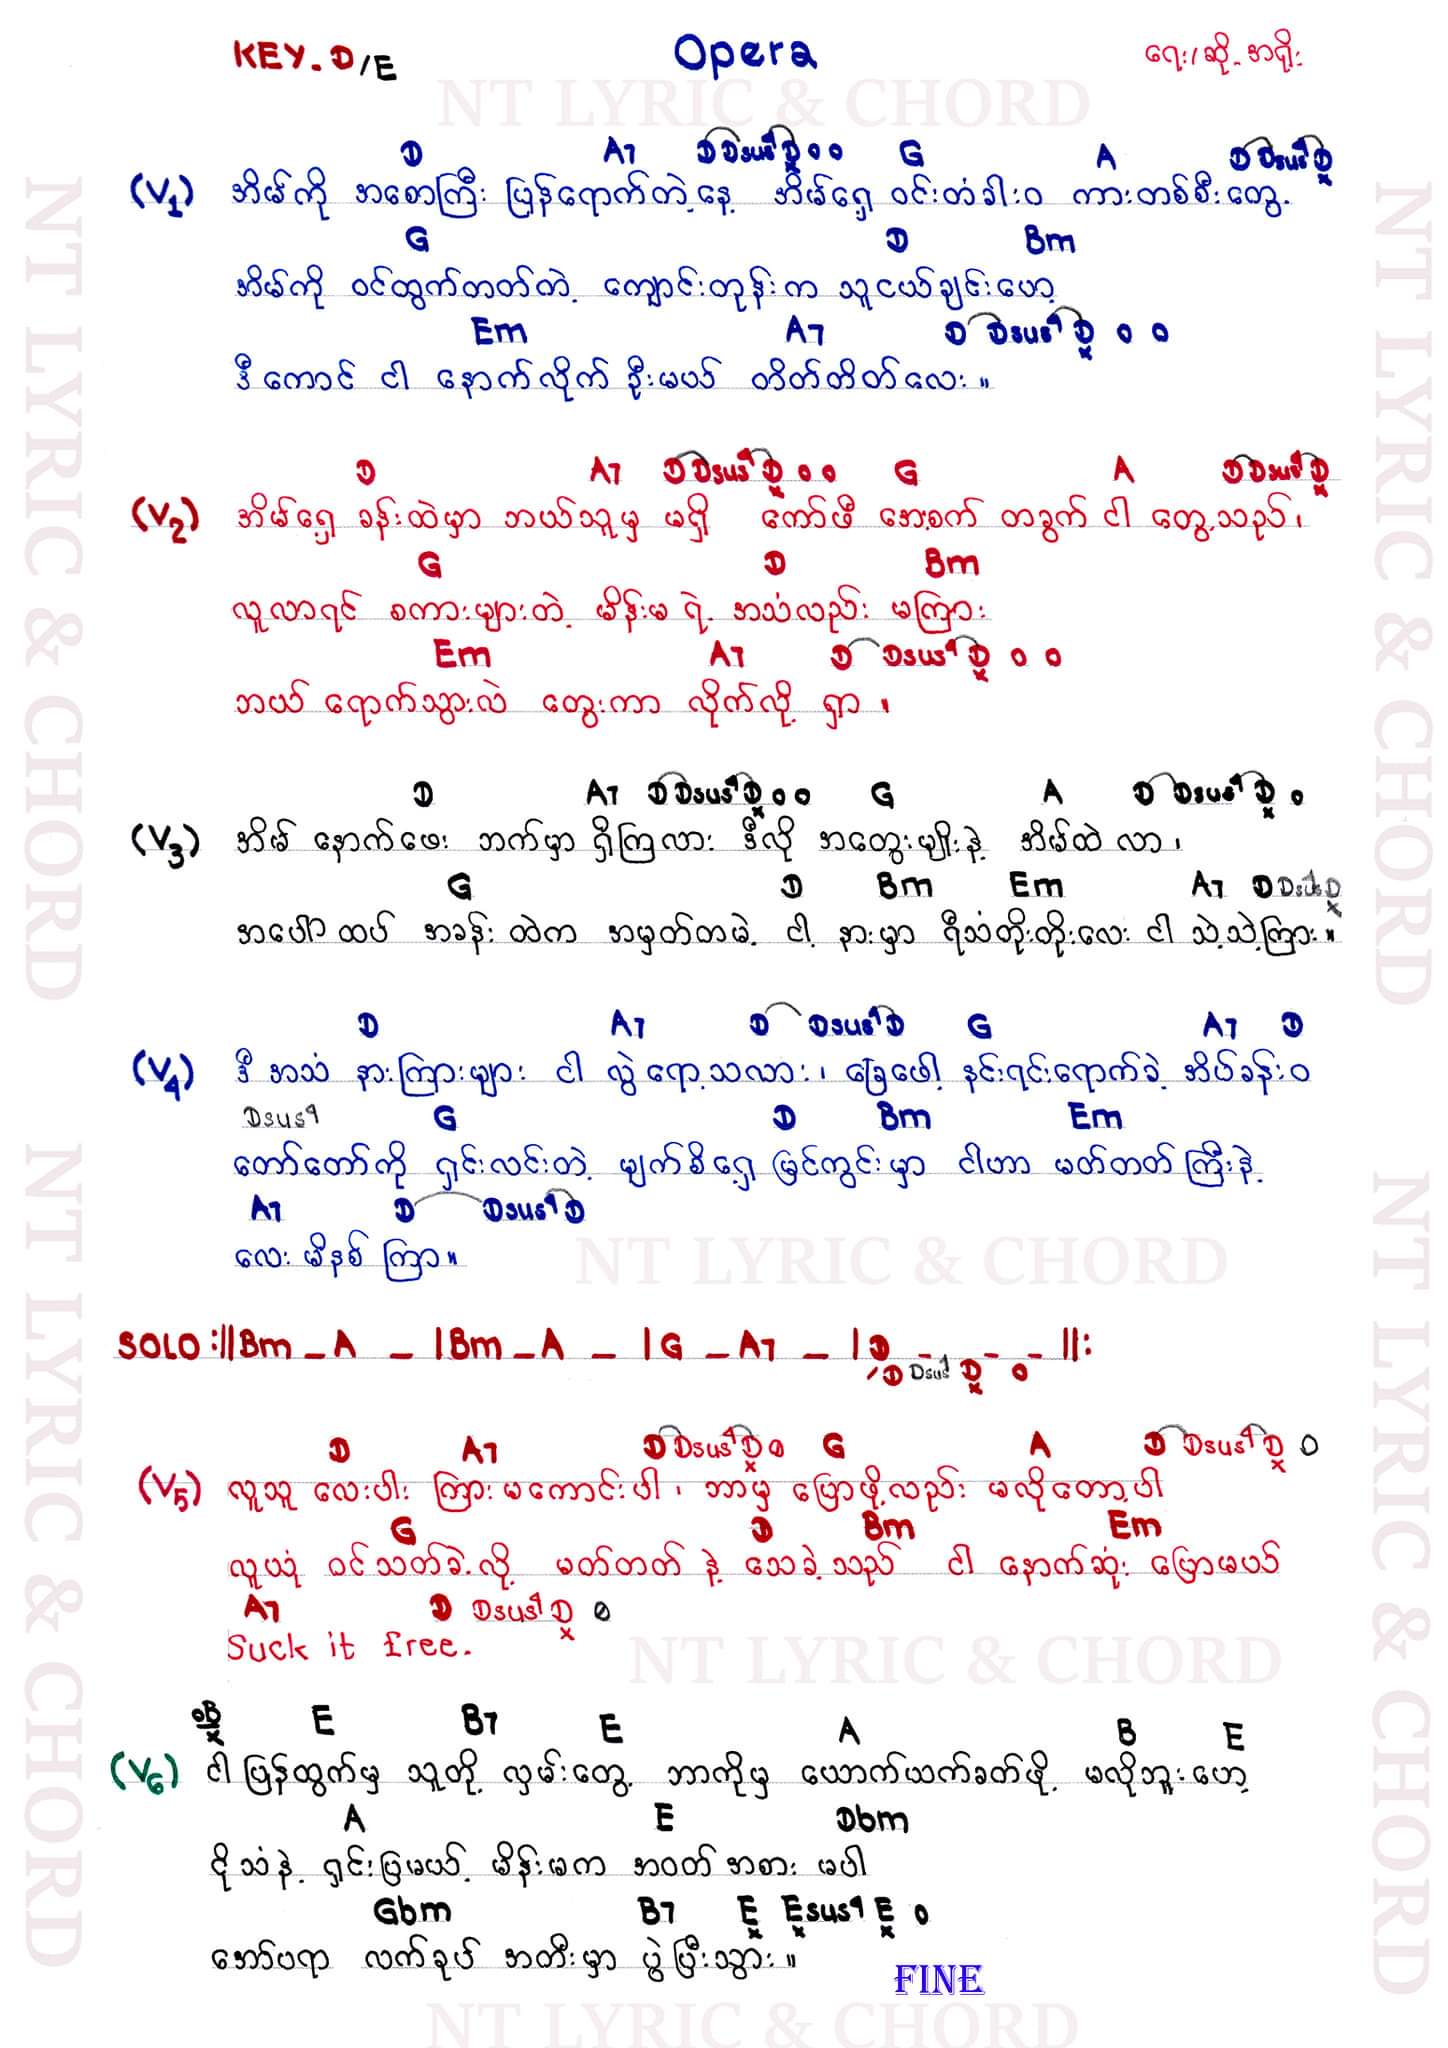 KEY. D/E Opera ရေး/ဆို. အရိုး
NT LYRIC & CHORD
D A7 D Dsus4 D o o G A D Dsus4 D
(V1) အိမ်ကို အစောကြီး ပြန်ရောက်တဲ့နေ့ အိမ်ရှေ့ ဝင်းတံခါးဝ ကားတစ်စီးတွေ့.
G D Bm
အိမ်ကို ဝင်ထွက်တတ်တဲ့ ကျောင်းတုန်းက သူငယ်ချင်းဟော့
Em A7 D Dsus4 D o o
ဒီကောင် ငါ နောက်လိုက် ဦးမယ် တိတ်တိတ်လေး။
D A7 D Dsus4 D o o G A D Dsus4 D
(V2) အိမ်ရှေ့ ခန်းထဲမှာ ဘယ်သူမှ မရှိ ကော်ဖီ အေးစက် တခွက် ငါ တွေ့သည်၊
G D Bm
လူလာရင် စကားများတဲ့ မိန်းမ ရဲ့ အသံလည်း မကြား
Em A7 D Dsus4 D o o
ဘယ် ရောက်သွားလဲ တွေးကာ လိုက်လို့ ရှာ ၊
D A7 D Dsus4 D o o G A D Dsus4 D o
(V3) အိမ် နောက်ဖေး ဘက်မှာ ရှိကြလား ဒီလို အတွေးမျိုးနဲ့ အိမ်ထဲ လာ ၊
G D Bm Em A7 D Dsus D
အပေါ်ထပ် အခန်း ထဲက အမှတ်တမဲ့ ငါ့ နားမှာ ရီသံတိုးတိုးလေး ငါ သဲ့သဲ့ကြား။
D A7 D Dsus4 D G A7 D
(V4) ဒီ အသံ နားကြားများ ငါ လွဲရော့သလား၊ ခြေဖော့ နင်းရင်းရောက်ခဲ့ အိပ်ခန်းဝ
Dsus4 G D Bm Em
တော်တော်ကို ရှင်းလင်းတဲ့ မျက်စိရှေ့ မြင်ကွင်းမှာ ငါဟာ မတ်တတ်ကြီးနဲ့
A7 D Dsus4 D
လေး မိနစ် ကြာ။
NT LYRIC & CHORD
SOLO :||Bm _ A _ |Bm _ A _ |G _ A7 _ |D - - - ||:
D Dsus4 D o
D A7 D Dsus4 D o G A D Dsus4 D o
(V5) လူသူ လေးပါး ကြားမကောင်းပါ၊ ဘာမှ ပြောဖို့လည်း မလိုတော့ပါ
G D Bm Em
လူယုံ ဝင်သတ်ခဲ့လို့ မတ်တတ် နဲ့ သေခဲ့သည် ငါ နောက်ဆုံး ပြောမယ်
A7 D Dsus4 D o
Suck it free.
NT LYRIC & CHORD
oB E B7 E A B E
(V6) ငါ ပြန်ထွက်မှ သူတို့ လှမ်းတွေ့ ဘာကိုမှ ယောက်ယက်ခတ်ဖို့ မလိုဘူးဟော့
A E Dbm
ငိုသံနဲ့ ရှင်းပြမယ့် မိန်းမက အဝတ်အစား မပါ
Gbm B7 E Esus4 E o
အော်ပရာ လက်ခုပ် အတီးမှာ ပွဲပြီးသွား။
FINE
NT LYRIC & CHORD
NT LYRIC & CHORD
NT LYRIC & CHORD
NT LYRIC & CHORD
NT LYRIC & CHORD